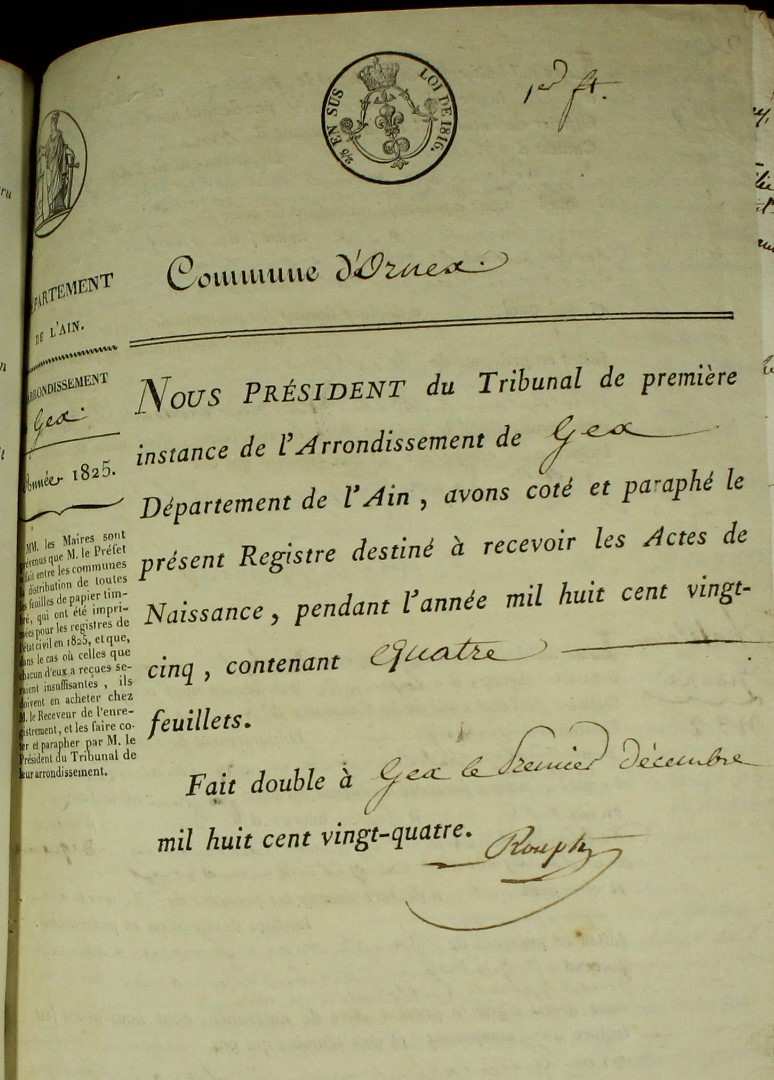 2/5 EN SUS
LOI DE 1816.
1er ft.
Commune d'Ornex.
PARTEMENT
DE L'AIN.
ARRONDISSEMENT
Gex.
Année 1825.
MM. les Maires sont
prévenus que M. le Préfet
fait entre les communes
distribution de toutes
feuilles de papier tim-
bré, qui ont été impri-
mées pour les registres de
l'état civil en 1825, et que,
dans le cas où celles que
chacun d'eux a reçues se-
raient insuffisantes, ils
doivent en acheter chez
M. le Receveur de l'enre-
gistrement, et les faire co-
ter et parapher par M. le
Président du Tribunal de
leur arrondissement.
NOUS PRÉSIDENT du Tribunal de première
instance de l'Arrondissement de Gex
Département de l'Ain, avons coté et paraphé le
présent Registre destiné à recevoir les Actes de
Naissance, pendant l'année mil huit cent vingt-
cinq, contenant Quatre
feuillets.
Fait double à Gex le Premier décembre
mil huit cent vingt-quatre.